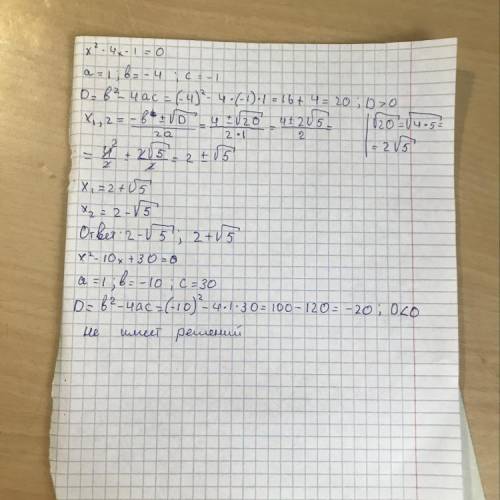 x² - 4x - 1 = 0
a = 1 ; в = -4 ; c = -1
D = в² - 4ac = (-4)² - 4·(-1)·1 = 16 + 4 = 20 ; D > 0
x₁,₂ = (-в ± √D)/2a = (4 ± √20)/(2·1) = (4 ± 2√5)/2 = | √20 = √4·5 =
= 4/2 ± 2√5/2 = 2 ± √5 | = 2√5
x₁ = 2 + √5
x₂ = 2 - √5
Ответ: 2 - √5 ; 2 + √5
x² - 10x + 30 = 0
a = 1 ; в = -10 ; c = 30
D = в² - 4ac = (-10)² - 4·1·30 = 100 - 120 = -20 ; D < 0
не имеет решений